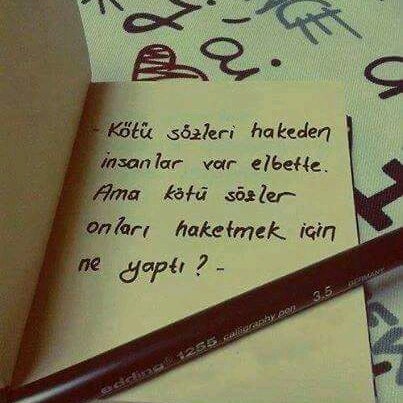 - Kötü sözleri hakeden
insanlar var elbette.
Ama kötü sözler
onları haketmek için
ne yaptı ? -
edding 1255 calligraphy pen 3.5 GERMANY